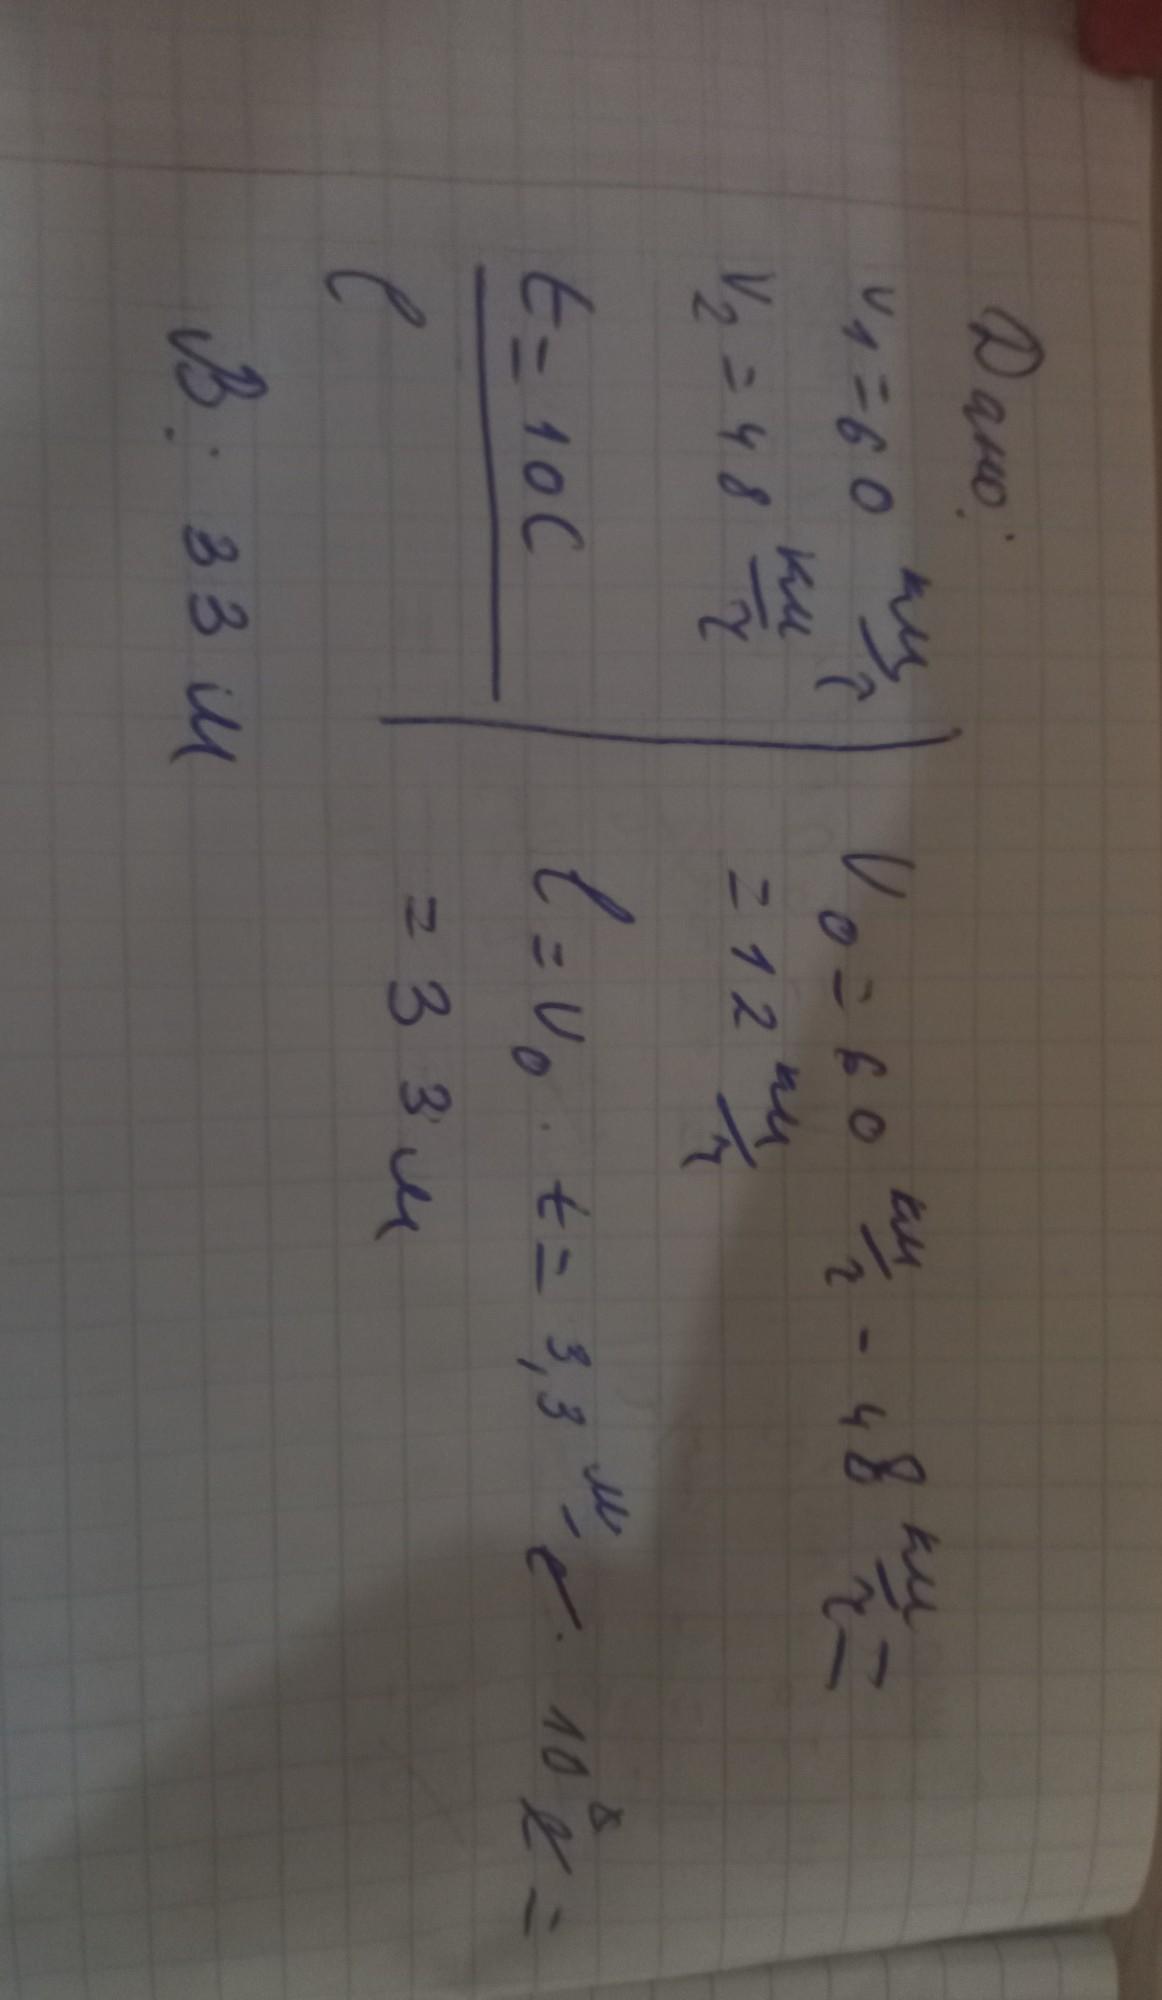 Дано:
v1 = 60 км/г
v2 = 48 км/г
t = 10с
l
v0 = 60 км/г - 48 км/г =
= 12 км/г
l = v0 · t = 3,3 м/с · 10 с =
= 33 м
В: 33 м